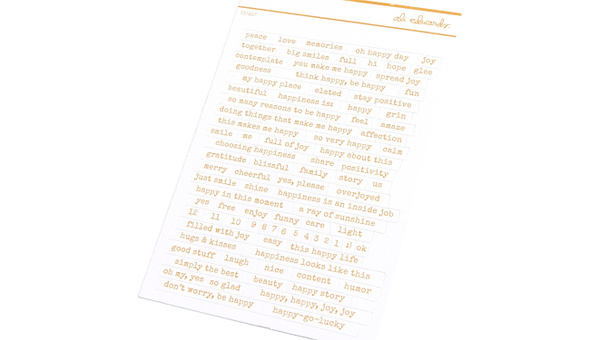 ali edwards
peace love memories oh happy day joy
together big smiles full hi hope glee
contemplate you make me happy spread joy
goodness think happy, be happy fun
my happy place elated stay positive
beautiful happiness is: happy grin
so many reasons to be happy feel amaze
doing things that make me happy affection
this makes me happy so very happy calm
smile me full of joy happy about this
choosing happiness share positivity
gratitude blissful family story us
merry cheerful yes, please overjoyed
just smile shine happiness is an inside job
happy in this moment a ray of sunshine
yes free enjoy funny care light
12 11 10 9 8 7 6 5 4 3 2 1 :) ok
filled with joy easy this happy life
hugs & kisses happiness looks like this
good stuff laugh nice content humor
simply the best beauty happy story
oh my, yes so glad happy, happy, joy, joy
don't worry, be happy happy-go-lucky